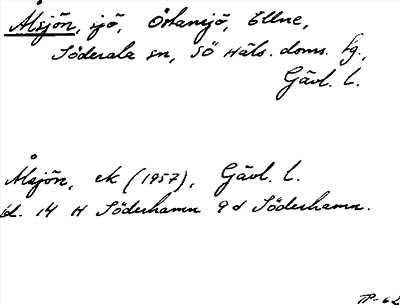 Ålsjön, sjö, Östansjö, Ellne,
Söderala sn, SÖ Häls. doms. fg.,
Gävl. l.
Ålsjön, ek (1957), Gävl. l.
bl. 14 H Söderhamn 9 d Söderhamn.